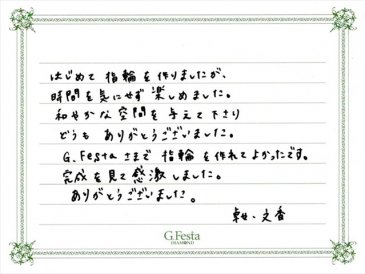 はじめて 指輪を作りましたが、
時間を気にせず楽しめました。
和やかな空間を与えて下さり
どうも ありがとうございました。
G.Festa さまで 指輪を作れてよかったです。
完成を見て感激しました。
ありがとうございました。
文香
G.Festa
DIAMOND